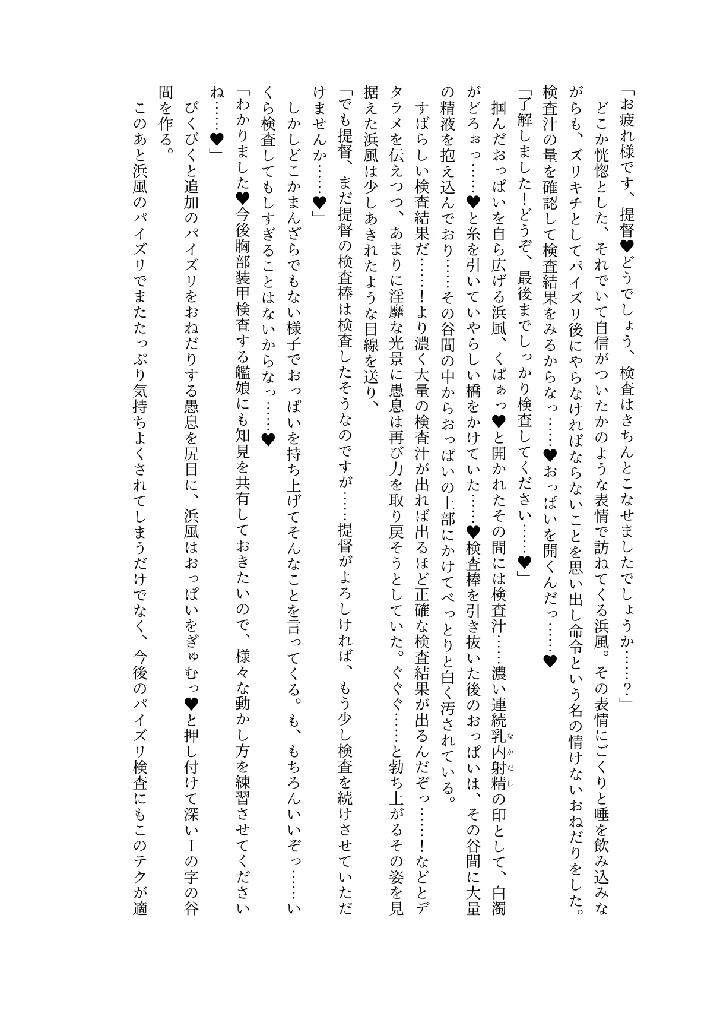 「お疲れ様です、提督♥どうでしょう、検査はきちんとこなせましたでしょうか……？」
どこか恍惚とした、それでいて自信がついたかのような表情で訪ねてくる浜風。その表情にごくりと唾を飲み込みな
がらも、ズリキチとしてパイズリ後にやらなければならないことを思い出し命令という名の情けないおねだりをした。
検査汁の量を確認して検査結果をみるからなっ……♥おっぱいを開くんだっ……♥
「了解しました！どうぞ、最後までしっかり検査してください……♥」
掴んだおっぱいを自ら広げる浜風、くぱぁっ♥と開かれたその間には検査汁……濃い連続乳内射精の印として、白濁
がどろぉっ……♥と糸を引いていやらしい橋をかけていた……♥検査棒を引き抜いた後のおっぱいは、その谷間に大量
の精液を抱え込んでおり……その谷間の中からおっぱいの上部にかけてべっとりと白く汚されている。
すばらしい検査結果だ……！より濃く大量の検査汁が出れば出るほど正確な検査結果が出るんだぞっ……！などとデ
タラメを伝えつつ、あまりに淫靡な光景に愚息は再び力を取り戻そうとしていた。ぐぐぐ……と勃ち上がるその姿を見
据えた浜風は少しあきれたような目線を送り、
「でも提督、まだ提督の検査棒は検査したそうなのですが……提督がよろしければ、もう少し検査を続けさせていただ
けませんか……♥」
しかしどこかまんざらでもない様子でおっぱいを持ち上げてそんなことを言ってくる。も、もちろんいいぞっ……い
くら検査してもしすぎることはないからなっ……♥
「わかりました♥今後胸部装甲検査する艦娘にも知見を共有しておきたいので、様々な動かし方を練習させてください
ね……♥」
びくびくと追加のパイズリをおねだりする愚息を尻目に、浜風はおっぱいをぎゅむっ♥と押し付けて深いＩの字の谷
間を作る。
このあと浜風のパイズリでまたたっぷり気持ちよくされてしまうだけでなく、今後のパイズリ検査にもこのテクが適